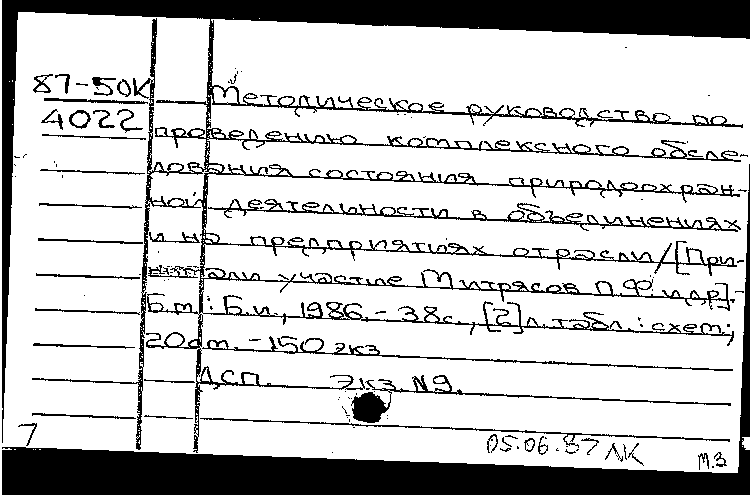 87-50К Методическое руководство по
4022 проведению комплексного обсле-
дования состояния природоохран-
ной деятельности в объединениях
и на предприятиях отрасли/[При-
няли участие Митрясов П.Ф. и др].-
Б.м.: Б.и., 1986.-38с., [2]л.табл.: схем;
20см.-150 экз
ДСП. Экз. №9.
7 05.06.87 ЛК м.з